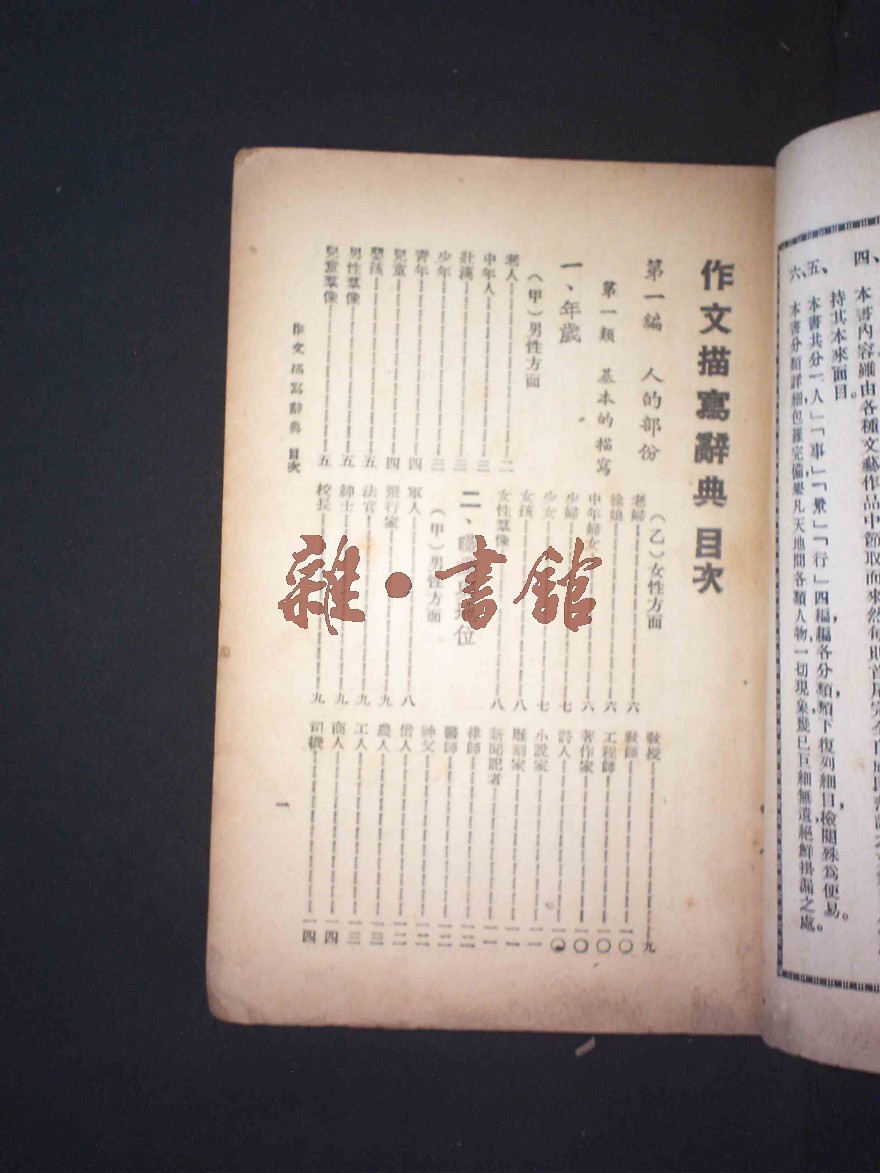 四、本書內容雖由各種文藝作品中節取而來然每則首尾完全
持其本來面目。
五、本書共分「人」「事」「景」「行」四編編各分類類下復列細目檢閱殊為便易。
六、本書分類詳細包羅完備舉凡天地間各類人物一切現象幾已巨細無遺絕鮮掛漏之處。
作文描寫辭典 目次
第一編 人的部份
第一類 基本的描寫
一、年歲
(甲)男性方面
老人 二
中年人 三
壯漢 三
少年 三
青年 四
兒童 四
嬰孩 五
男性羣像 五
兒童羣像 五
(乙)女性方面
老婦 六
徐娘 六
中年婦女 六
少婦 七
少女 七
女孩 八
女性羣像 八
二、 位
(甲)男性方面
軍人 八
飛行家 九
法官 九
紳士 九
校長 九
教授 九
教師 一〇
工程師 一〇
著作家 一〇
詩人 一〇
小說家 一一
雕刻家 一一
新聞記者 一一
律師 一二
醫師 一二
神父 一二
僧人 一二
農人 一三
工人 一三
商人 一四
司機 一四
作文描寫辭典 目次
一
雜·書館